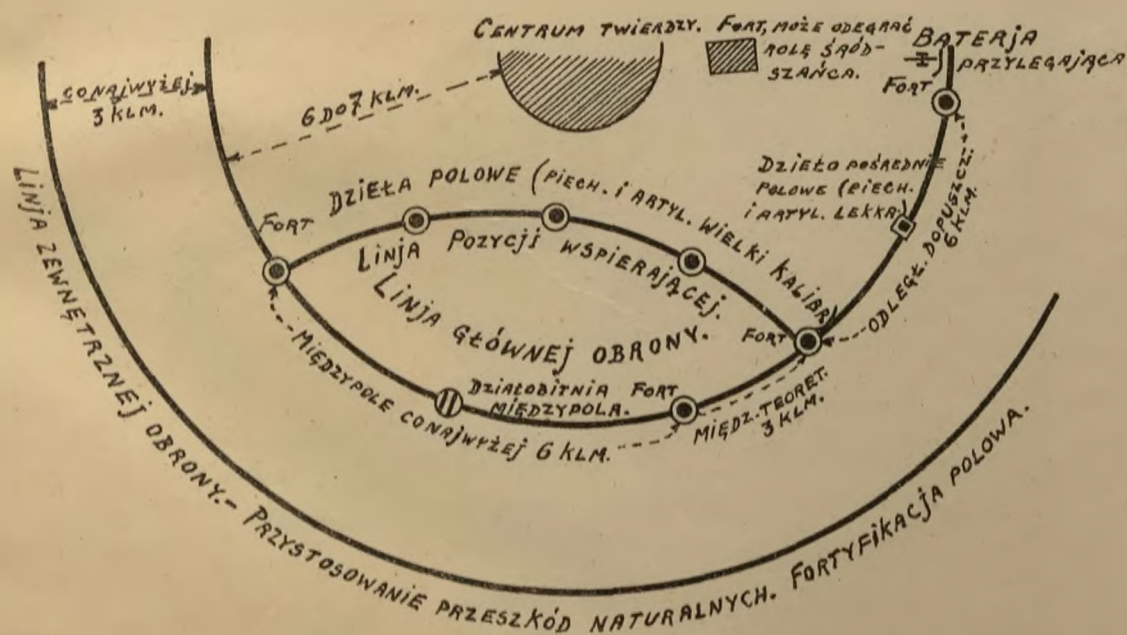 CENTRUM TWIERDZY.
FORT, MOŻE ODEGRAĆ
ROLĘ ŚRÓD-
SZAŃCA.
BATERJA
PRZYLEGAJĄCA
FORT
CONAJWYŻEJ
3 KLM.
6 DO 7 KLM.
DZIEŁO POŚREDNIE
POLOWE (PIECH.
I ARTYL. LEKKA)
ODLEGŁ. DOPUSZCZ:
6 KLM.
FORT
DZIEŁA POLOWE (PIECH. I ARTYL. WIELKI KALIBR)
LINJA POZYCJI WSPIERAJĄCEJ.
LINJA GŁÓWNEJ OBRONY.
FORT
DZIAŁOBITNIA
MIĘDZYPOLA.
FORT
MIĘDZYPOLE CONAJWYŻEJ 6 KLM.
MIĘDZ. TEORET.
3 KLM.
LINJA ZEWNĘTRZNEJ OBRONY.- PRZYSTOSOWANIE PRZESZKÓD NATURALNYCH. FORTYFIKACJA POLOWA.